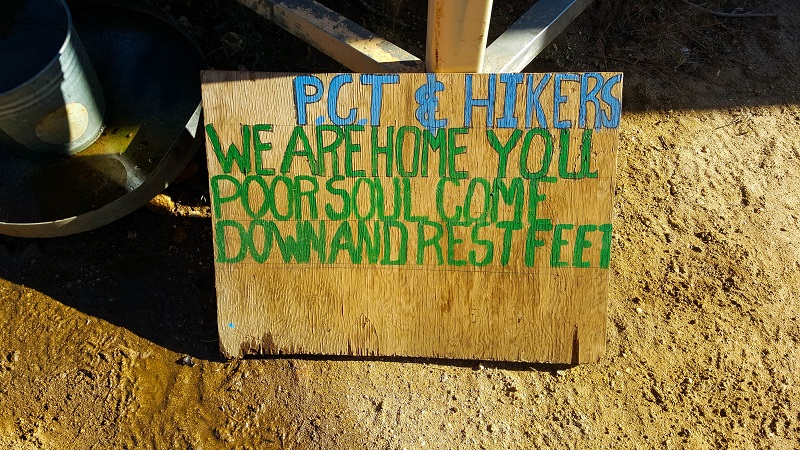 P.C.T & HIKERS
WE ARE HOME YOU
POOR SOUL COME
DOWN AND REST FEET